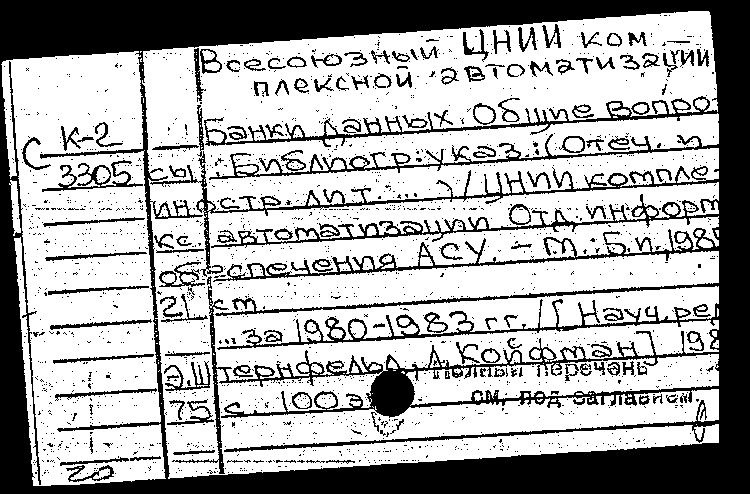 Всесоюзный ЦНИИ ком –
плексной автоматизации
К-2
С 3305
Банки данных. Общие вопро-
сы. : Библиогр. указ. : (Отеч. и
иностр. лит. ... ) / ЦНИИ компле-
кс. автоматизации Отд. информ
обеспечения АСУ. – М. : Б.и., 198
21 cm.
... за 1980-1983 гг. / [ Науч. ред
Э. Штернфельд, А. Койфман] 198
75 с. . 100 э
Полный перечень
см. под заглавием.
20